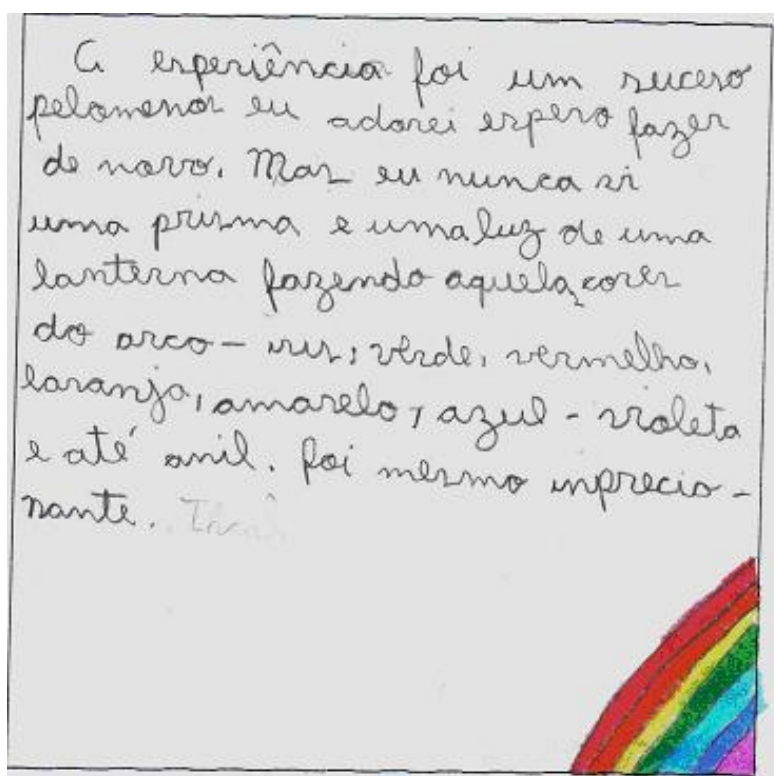 A experiência foi um suceso
pelomenos eu adorei espero fazer
de novo. Mas eu nunca vi
uma prisma e umaluz de uma
lanterna fazendo aquelas cores
do arco-iris: verde, vermelho,
laranja, amarelo, azul-violeta
e até anil. foi mesmo inprecio-
nante.